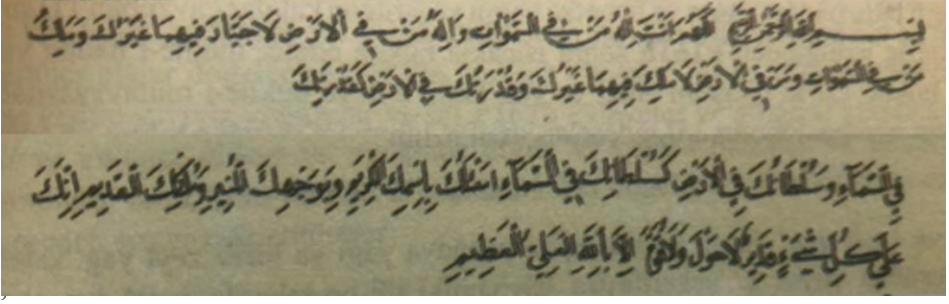 بِسْمِ اللهِ الرَّحْمٰنِ الرَّحِيْمِ اَللّٰهُمَّ اَنْتَ اِلٰهُ مَنْ فِي السَّمٰوَاتِ وَاِلٰهُ مَنْ فِي الْاَرْضِ لَا جَبَّارَ فِيْهِمَا غَيْرُكَ وَمَلِكُ
مَنْ فِي السَّمٰوَاتِ وَمَنْ فِي الْاَرْضِ لَا مَلِكَ فِيْهِمَا غَيْرُكَ وَقُدْرَتُكَ فِي الْاَرْضِ كَقُدْرَتِكَ
فِي السَّمَآءِ وَسُلْطَانُكَ فِي الْاَرْضِ كَسُلْطَانِكَ فِي السَّمَآءِ اَسْئَلُكَ بِاسْمِكَ الْكَرِيْمِ وَبِوَجْهِكَ الْمُنِيْرِ وَمُلْكِكَ الْقَدِيْمِ اِنَّكَ
عَلٰى كُلِّ شَيْءٍ قَدِيْرٌ لَا حَوْلَ وَلَا قُوَّةَ اِلَّا بِاللهِ الْعَلِيِّ الْعَظِيْمِ